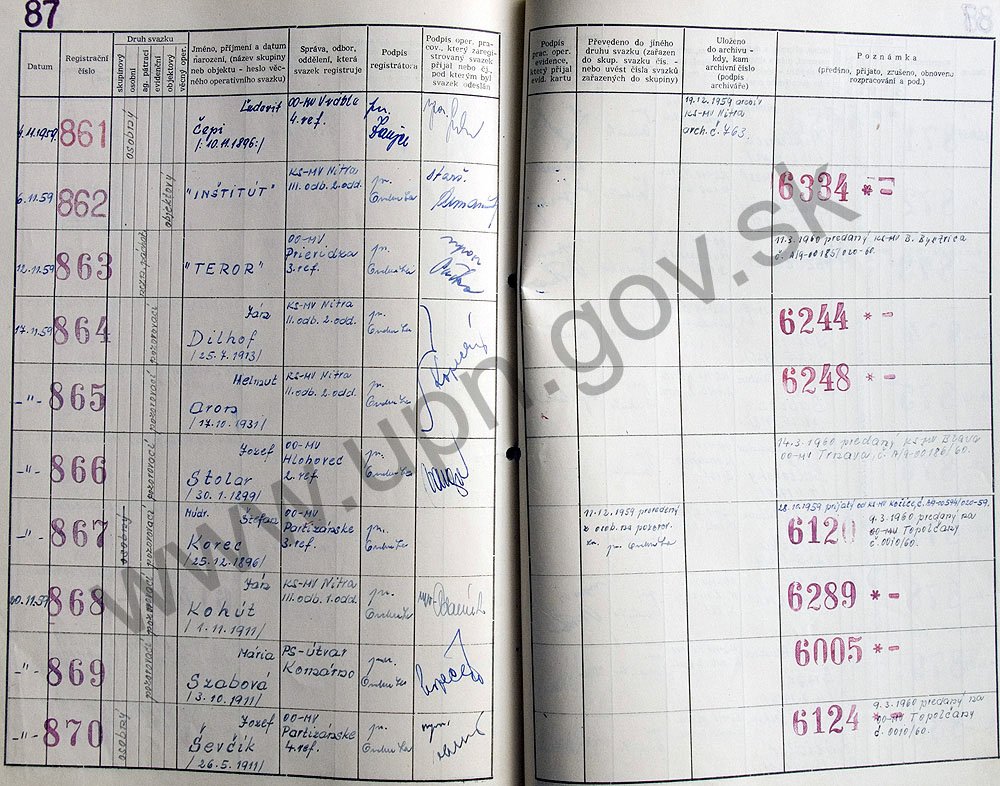 87
Datum
Registrační číslo
Druh svazku
skupinový
osobní
ag. pátrací
evidenční
objektový
věcný oper.
Jméno, příjmení a datum
narození, (název skupiny
neb objektu - heslo věc-
ného operativního svazku)
Správa, odbor,
oddělení, která
svazek registruje
Podpis
registrátora
Podpis oper. pra-
cov., který zaregi-
strovaný svazek
přijal nebo čj.,
pod kterým byl
svazek odeslán
Podpis
prac. oper.
evidence,
který přijal
evid. kartu
Převedeno do jiného
druhu svazku (zařazen
do skup. svazku čís. -
nebo uvést čísla svazků
zařazených do skupiny)
Uloženo
do archivu -
kdy, kam
archivní číslo
(podpis
archiváře)
Poznámka
(předáno, přijato, zrušeno, obnoveno
rozpracování a pod.)
4.11.1959 861 osobný Ľudovít
Čepi
/: 10.11.1896:/
OO-MV Vráble
4. ref.
19.12.1959 archív
KS-MV Nitra
arch. č. 763.
6.11.59 862 objektový "INŠTITÚT" KS-MV Nitra
III. odb. 2. odd.
6334 * =
12.11.59 863 "TEROR" OO-MV
Prievidza
3. ref.
11.3.1960 predaný KS-MV B. Bystrica
č. A/9-00185/020-60.
17.11.59 864 pozorovací Ján
Dilhof
/25.7.1913/
KS-MV Nitra
II. odb. 2. odd.
6244 * -
-"- 865 pozorovací Helmut
Arons
/17.10.1931/
KS-MV Nitra
II. odb. 2. odd.
6248 * -
-"- 866 pozorovací Jozef
Stolár
/30.1.1899/
OO-MV
Hlohovec
2. ref.
14.3.1960 predaný KS-MV Blava
OO-MV Trnava, č. A/9-00186/60.
-"- 867 osobný pozorovací Mudr. Štefan
Korec
/25.12.1896/
OO-MV
Partizánske
3. ref.
11.12.1959 prevedený
z osob. na pozoro-
28.10.1959 prijatý od KS-MV Košice č. A/9-00594/020-59.
6120 9.3.1960 predaný na
OO-MV Topoľčany
č. 0010/60.
20.11.59 868 pozorovací Ján
Kohút
/1.11.1911/
KS-MV Nitra
III. odb. 1. odd.
6289 * -
-"- 869 pozorovací Mária
Szabová
/3.10.1911/
PS-útvar
Komárno
6005 * -
-"- 870 osobný Jozef
Ševčík
/26.5.1911/
OO-MV
Partizánske
4. ref.
6124 * - 9.3.1960 predaný na
OO-MV Topoľčany
č. 0010/60.
www.upn.gov.sk